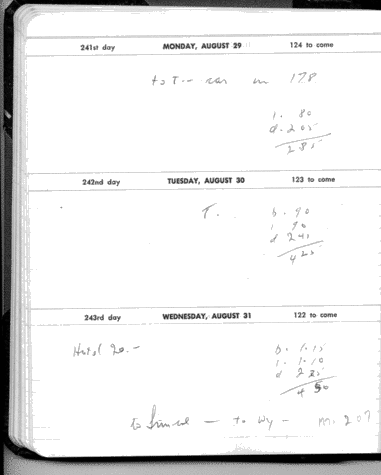 241st day MONDAY, AUGUST 29 124 to come
to T - car m 178
l. 80
d. 2.05
2 85
242nd day TUESDAY, AUGUST 30 123 to come
T. b. 90
l. 90
d 2
4 25
243rd day WEDNESDAY, AUGUST 31 122 to come
Hotel 20.- b. 1.15
l. 1.10
d 2 25
4 50
to - to Wy - m. 207